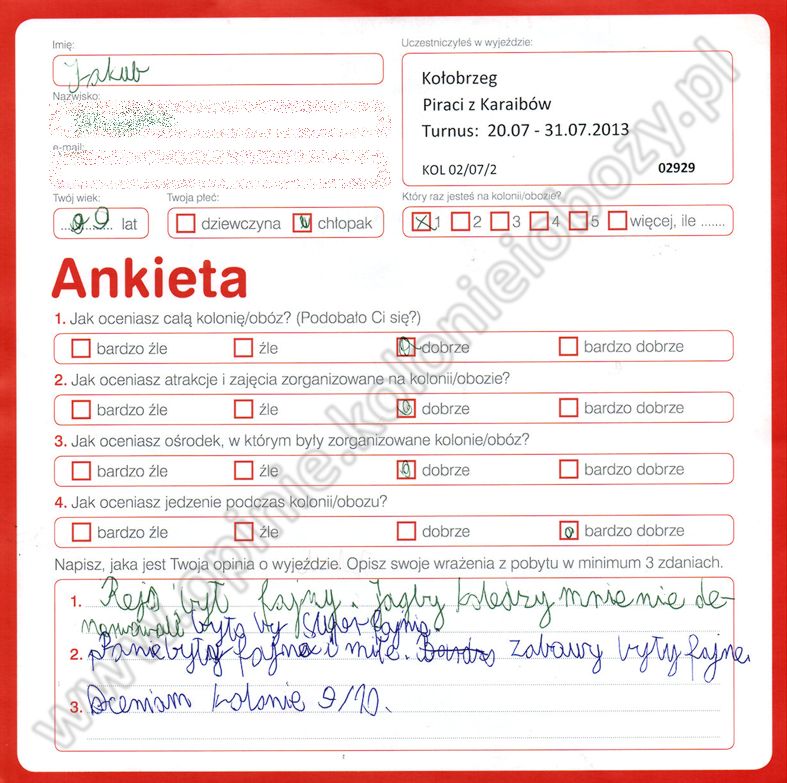 Imię:
Jakub
Uczestniczyłeś w wyjeździe:
Kołobrzeg
Piraci z Karaibów
Turnus: 20.07 - 31.07.2013
KOL 02/07/2 02929
Nazwisko:
e-mail:
Twój wiek:
09 lat
Twoja płeć:
dziewczyna chłopak
Który raz jesteś na kolonii/obozie?
1 2 3 4 5 więcej, ile .......
Ankieta
1. Jak oceniasz całą kolonię/obóz? (Podobało Ci się?)
bardzo źle źle dobrze bardzo dobrze
2. Jak oceniasz atrakcje i zajęcia zorganizowane na kolonii/obozie?
bardzo źle źle dobrze bardzo dobrze
3. Jak oceniasz ośrodek, w którym były zorganizowane kolonie/obóz?
bardzo źle źle dobrze bardzo dobrze
4. Jak oceniasz jedzenie podczas kolonii/obozu?
bardzo źle źle dobrze bardzo dobrze
Napisz, jaka jest Twoja opinia o wyjeździe. Opisz swoje wrażenia z pobytu w minimum 3 zdaniach.
1. Rejs był fajny. Jagby koledzy mnie nie de-
było by super fajnie.
2. Panie były fajne i miłe. zabawy były fajne.
3. Oceniam kolonie 9/10.
www.opinie.kolonieiobozy.pl